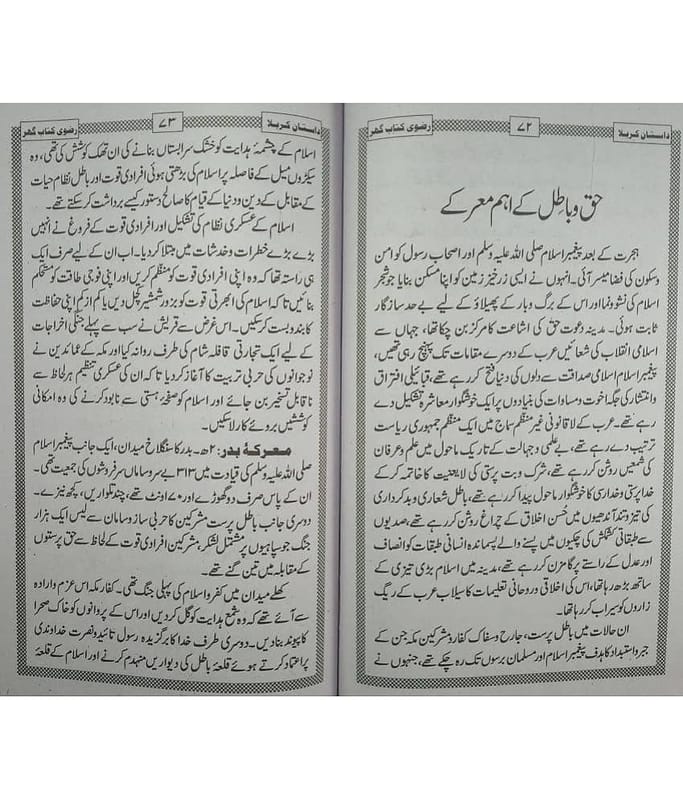 داستان کربلا
۷۲
رضوی کتاب گھر
حق و باطل کے اہم معرکے
ہجرت کے بعد پیغمبر اسلام صلی اللہ علیہ وسلم اور اصحاب رسول کو امن
وسکون کی فضا میسر آئی۔ انہوں نے ایسی زرخیز زمین کو اپنا مسکن بنایا جو شجر
اسلام کی نشوونما اور اس کے برگ و بار کے پھیلاؤ کے لیے بے حد سازگار
ثابت ہوئی۔ مدینہ دعوت حق کی اشاعت کا مرکز بن چکا تھا، جہاں سے
اسلامی انقلاب کی شعائیں عرب کے دوسرے مقامات تک پہنچ رہی تھیں،
پیغمبر اسلام اسلامی صداقت سے دلوں کی دنیا فتح کر رہے تھے، قبائیلی افتراق
وانتشار کی جگہ اخوت و مساوات کی بنیادوں پر ایک خوشگوار معاشرہ تشکیل دے
رہے تھے۔ عرب کے لا قانونی غیر منظم سماج میں ایک منظم جمہوری ریاست
ترتیب دے رہے تھے، بے علمی و جہالت کے تاریک ماحول میں علم و عرفان
کی شمعیں روشن کر رہے تھے، شرک و بت پرستی کی لایعنیت کا خاتمہ کر کے
خدا پرستی و خدا رسی کا خوشگوار ماحول پیدا کر رہے تھے، باطل شعاری و بدکرداری
کی تیز و تند آندھیوں میں حُسن اخلاق کے چراغ روشن کر رہے تھے، صدیوں
سے طبقاتی کشمکش کی چکیوں میں پسنے والے پسماندہ انسانی طبقات کو انصاف
اور عدل کے راستے پر گامزن کر رہے تھے، مدینہ میں اسلام بڑی تیزی کے
ساتھ بڑھ رہا تھا، اس کی اخلاقی و روحانی تعلیمات کا سیلاب عرب کے ریگ
زاروں کو سیراب کر رہا تھا۔
ان حالات میں باطل پرست، جارح و سفاک کفار و مشرکین مکہ جن کے
جبر و استبداد کا ہدف پیغمبر اسلام اور مسلمان برسوں تک رہ چکے تھے، جنہوں نے
داستان کربلا
۷۳
رضوی کتاب گھر
اسلام کے چشمۂ ہدایت کو خشک سرابستاں بنانے کی ان تھک کوشش کی تھی، وہ
سیکڑوں میل کے فاصلہ پر اسلام کی بڑھتی ہوئی افرادی قوت اور باطل نظام حیات
کے مقابل کے دین و دنیا کے قیام کا صالح دستور کیسے برداشت کر سکتے تھے۔
اسلام کے عسکری نظام کی تشکیل اور افرادی قوت کے فروغ نے انہیں
بڑے بڑے خطرات و خدشات میں مبتلا کر دیا۔ اب ان کے لیے صرف ایک
ہی راستہ تھا کہ وہ اپنی افرادی قوت کو منظم کریں اور اپنی فوجی طاقت کو مستحکم
بنائیں تاکہ اسلام کی ابھرتی قوت کو بزور شمشیر کچل دیں یا کم از کم اپنی حفاظت
کا بندوبست کر سکیں۔ اس غرض سے قریش نے سب سے پہلے جنگی اخراجات
کے لیے ایک تجارتی قافلہ شام کی طرف روانہ کیا اور مکہ کے عمائدین نے
نوجوانوں کی حربی تربیت کا آغاز کر دیا تاکہ ان کی عسکری تنظیم ہر لحاظ سے
ناقابل تسخیر بن جائے اور اسلام کو صفحۂ ہستی سے نابود کرنے کی وہ امکانی
کوششیں بروئے کار لا سکیں۔
معرکۂ بدر: ۲ھ۔ بدر کا سنگلاخ میدان، ایک جانب پیغمبر اسلام
صلی اللہ علیہ وسلم کی قیادت میں ۳۱۳ بے سر و ساماں سرفروشوں کی جمعیت تھی۔
ان کے پاس صرف دو گھوڑے اور ۷۰ اونٹ تھے، چند تلواریں، کچھ نیزے۔
دوسری جانب باطل پرست مشرکین کا حربی ساز و سامان سے لیس ایک ہزار
جنگ جو سپاہیوں پر مشتمل لشکر، مشرکین افرادی قوت کے لحاظ سے حق پرستوں
کے مقابلہ میں تین گنے تھے۔
کھلے میدان میں کفر و اسلام کی پہلی جنگ تھی۔ کفار مکہ اس عزم و ارادہ
سے آئے تھے کہ وہ شمع ہدایت کو گل کر دیں اور اس کے پروانوں کو خاک صحرا
کا پیوند بنا دیں۔ دوسری طرف خدا کا برگزیدہ رسول تائید و نصرت خداوندی
پر اعتماد کرتے ہوئے قلعۂ باطل کی دیواریں منہدم کرنے اور اسلام کے قلعۂ